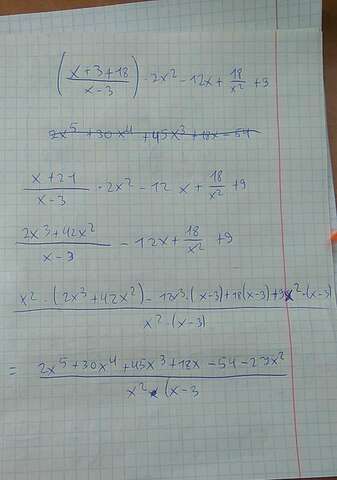 (x+3+18 / x-3) · 2x² - 12x + 18/x² + 9
2x⁵ + 30x⁴ + 45x³ + 18x - 54
x+21 / x-3 · 2x² - 12 x + 18/x² + 9
2x³+42x² / x-3 - 12x + 18/x² + 9
x² · (2x³+42x²) - 12x³ · (x-3) + 18(x-3) + 9x² · (x-3) / x² · (x-3)
= 2x⁵ + 30x⁴ + 45x³ + 18x - 54 - 27x² / x² · (x-3